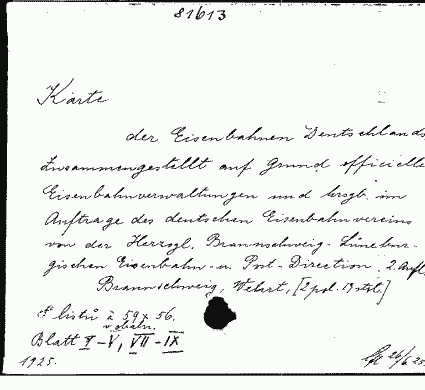 81613
Karte
der Eisenbahnen Deutschlands
Zusammengestellt auf Grund officielle
Eisenbahnverwaltungen und hrsgb. im
Auftrage des deutschen Eisenbahnvereins
von der Herzogl. Braunschweig-Lünebur-
gischen Eisenbahn- u. Post-Direction. 2. Aufl.
Braunschweig, Wehrt, [2 pol. 19 stol.]
listů à 59 x 56.
v obaln.
Blatt I-V, VII-IX
1925.